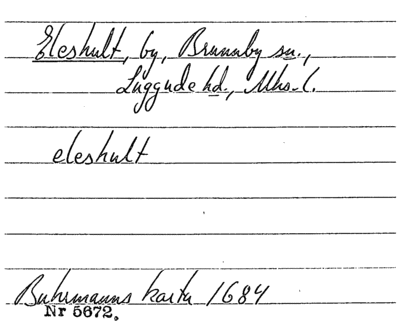 Eleshult, by, Brunnby sn.,
Luggude hd., Mhs. l.
eleshult
Buhrmanns karta 1684
Nr 5672.